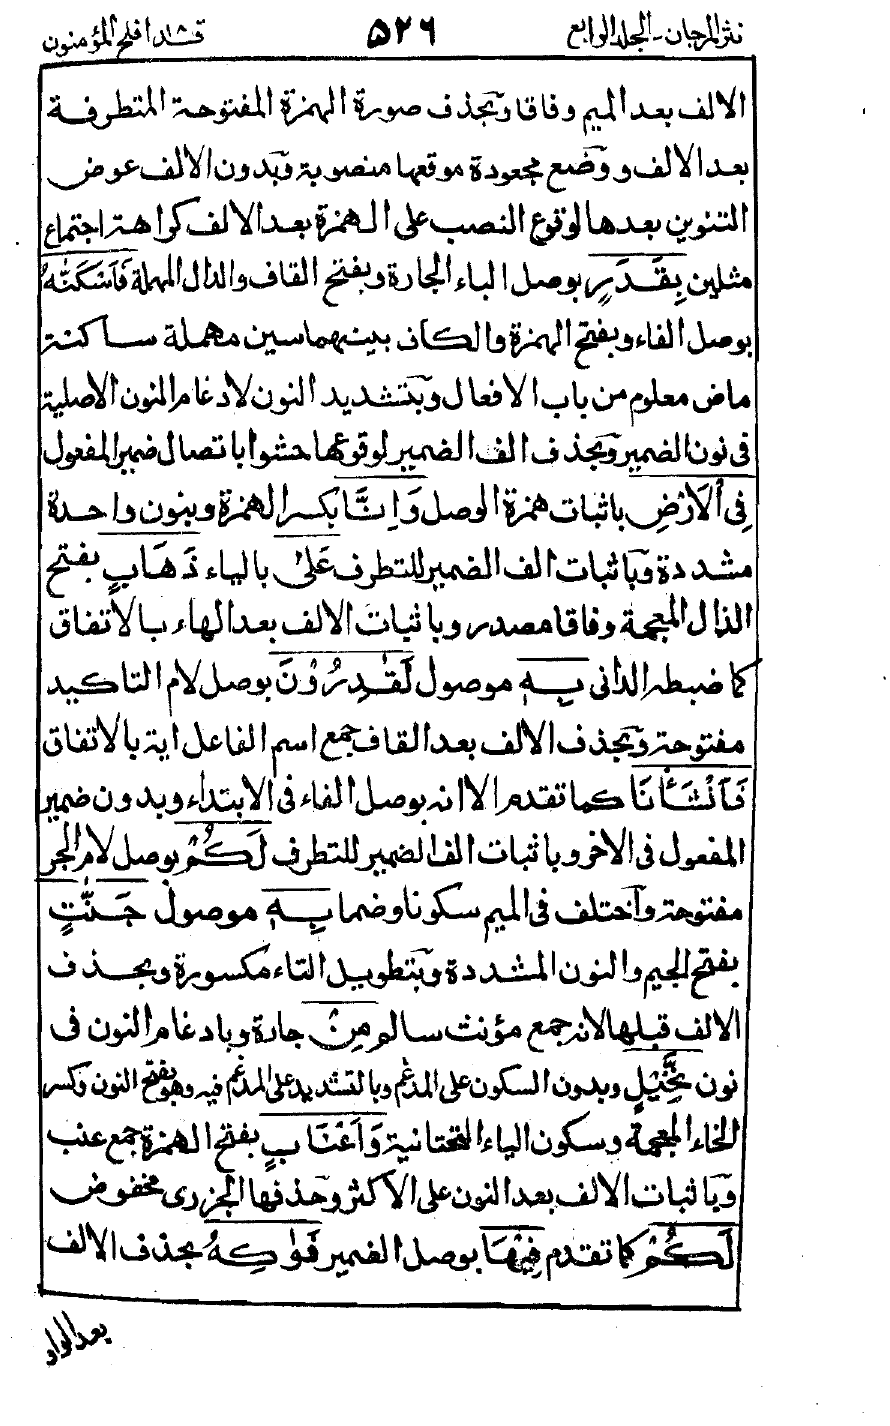 نثر المرجان - الجلد الرابع ٥٢٦ قد افلح المؤمنون
الالف بعد الميم وفاقا وبحذف صورة الهمزة المفتوحة المتطرفة
بعد الالف ووضع مجعودة موقعها منصوبة وبدون الالف عوض
التنوين بعدها لوقوع النصب على الهمزة بعد الالف كراهة اجتماع
مثلين بِقَدَرٍ بوصل الباء الجارة وبفتح القاف والدال المهملة فَاَسْكَنّٰهُ
بوصل الفاء وبفتح الهمزة والكاف بينهما سين مهملة ساكنة
ماض معلوم من باب الافعال وبتشديد النون لادغام النون الاصلية
فى نون الضمير وبحذف الف الضمير لوقوعها حشوا باتصال ضمير المفعول
فِى الْاَرْضِ باثبات همزة الوصل وَاِنَّا بكسر الهمزة وبنون واحدة
مشددة وباثبات الف الضمير للتطرف عَلٰى بالياء ذَهَابٍ بفتح
الذال المعجمة وفاقا مصدر وباثبات الالف بعد الهاء بالاتفاق
كما ضبطه الدانى بِهٖ موصول لَقٰدِرُوْنَ بوصل لام التاكيد
مفتوحة وبحذف الالف بعد القاف جمع اسم الفاعل اية بالاتفاق
فَاَنْشَأْنَا كما تقدم الا انه بوصل الفاء فى الابتداء وبدون ضمير
المفعول فى الاخر وباثبات الف الضمير للتطرف لَكُمْ بوصل لام الجر
مفتوحة واختلف فى الميم سكونا وضما بِهٖ موصول جَنّٰتٍ
بفتح الجيم والنون المشددة وبتطويل التاء مكسورة وبحذف
الالف قبلها لانه جمع مؤنث سالم مِنْ جارة وبادغام النون فى
نون نَّخِيْلٍ وبدون السكون على المدغم وبالتشديد على المدغم فيه وهو بفتح النون وكسر
الخاء المعجمة وسكون الياء التحتانية وَاَعْنَابٍ بفتح الهمزة جمع عنب
وباثبات الالف بعد النون على الاكثر وحذفها الجزرى مخفوض
لَكُمْ كما تقدم فِيْهَا بوصل الضمير فَوٰكِهُ بحذف الالف
بعد الواو